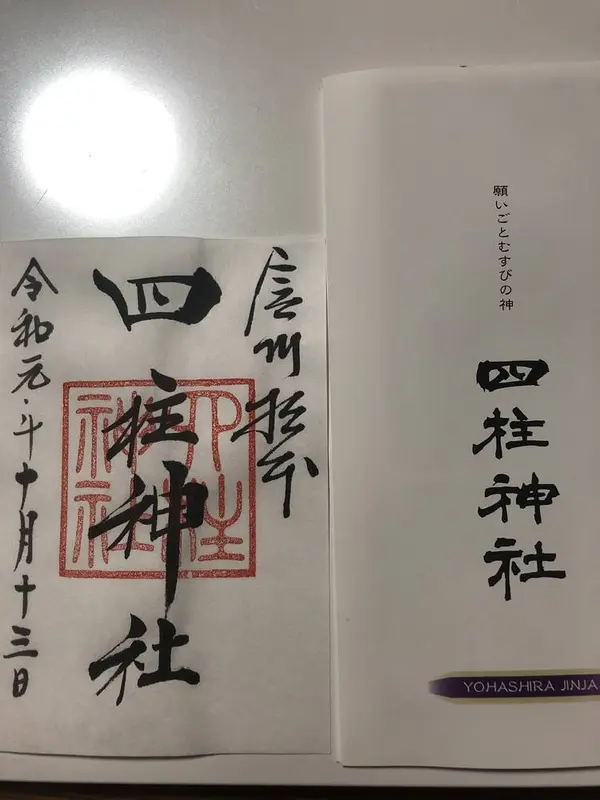 信州松本
四柱神社
令和元年十月十三日
四柱神社
願いごとむすびの神
四柱神社
YOHASHIRA JINJA